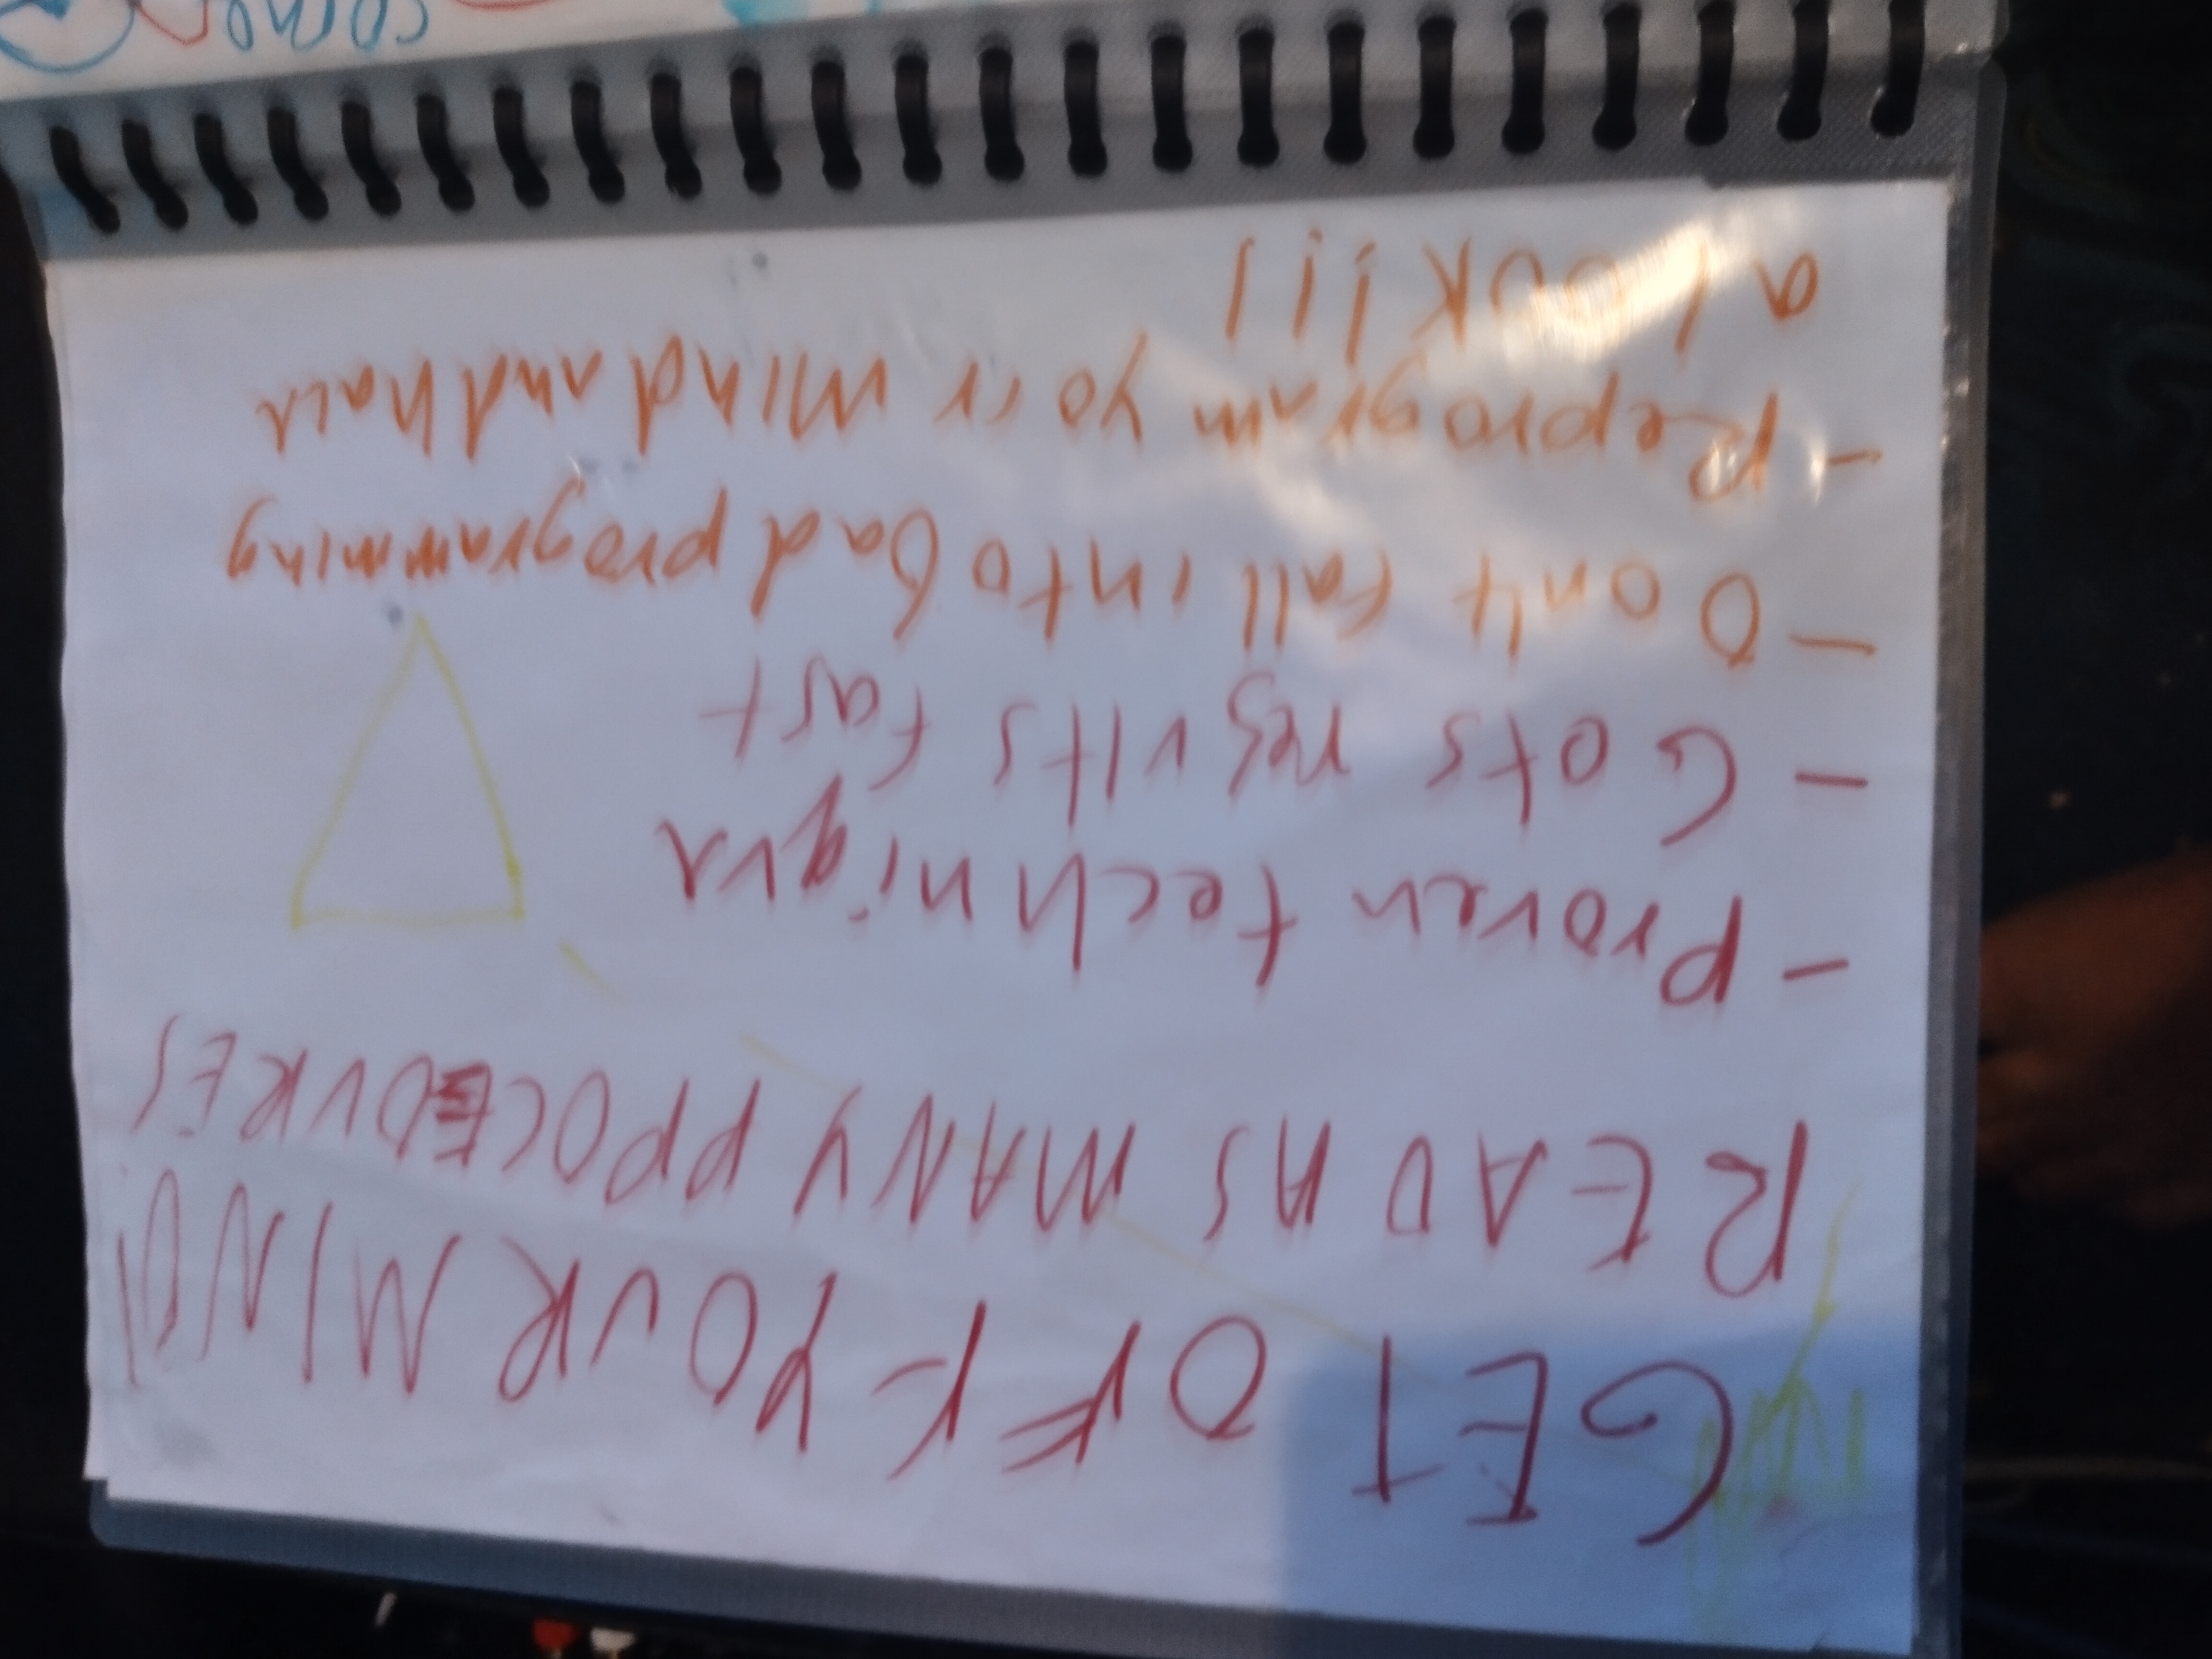 GET OFF YOUR MIND!
READ AS MANY PPOCEDURES
- Proven technique
- Gets results fast
- Dont fall into bad programming
- Reprogram your mind and have
a LOOK!!!